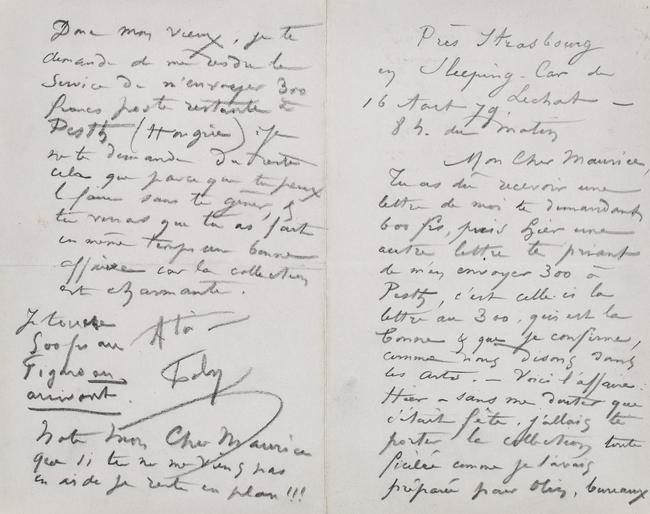 Près Strasbourg
en Sleeping-Car du
16 Août 79, Lechat —
8 h. du matin
Mon Cher Maurice,
Tu as dû recevoir une
lettre de moi te demandant
600 frs, puis hier une
autre lettre te priant
de m'en envoyer 300 à
Pesth, c'est celle-ci la
lettre au 300. qui est la
bonne & que je confirme,
comme nous disons dans
les arts. — Voici l'affaire:
Hier — sans me douter que
c'était fête. j'allais te
porter la collection toute
ficelée comme je l'avais
préparée pour bureaux
Donc mon vieux, je te
demande de me rendre le
service de m'envoyer 300
francs poste restante à
Pesth (Hongrie) je
ne te demande du reste
cela que parce que tu peux
le faire sans te gêner, &
tu verras que tu as fait
en même temps une bonne
affaire car la collection
est charmante.
Je touche
500 frs au
Figaro en
arrivant.
A toi —
Note mon Cher Maurice
que si tu ne me viens pas
en aide je reste en plan!!!